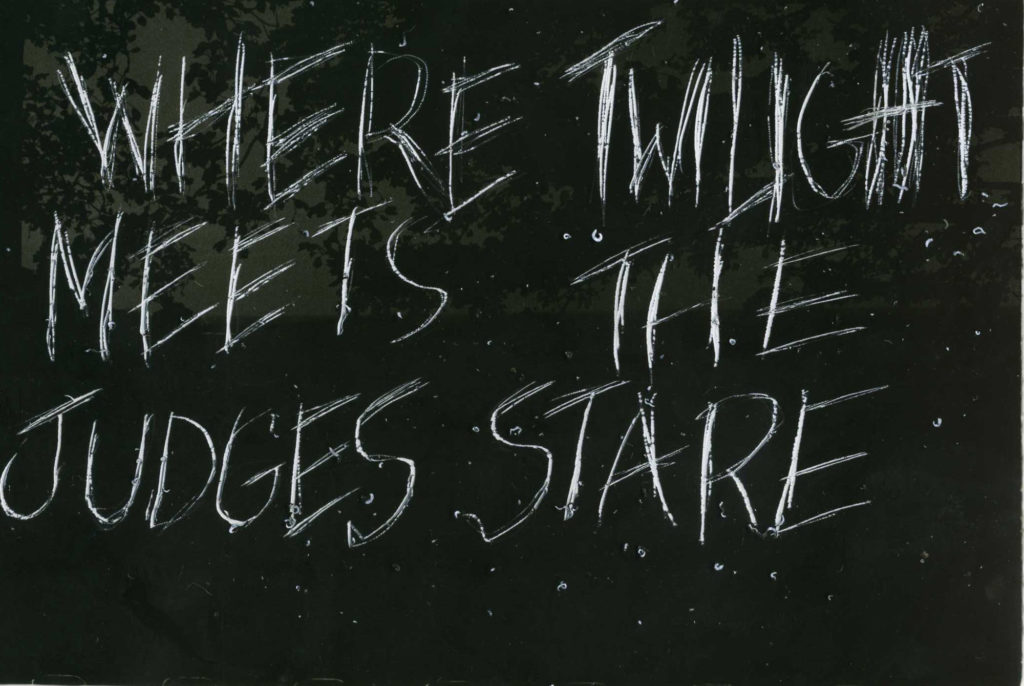 WHERE TWILIGHT
MEETS THE
JUDGES STARE